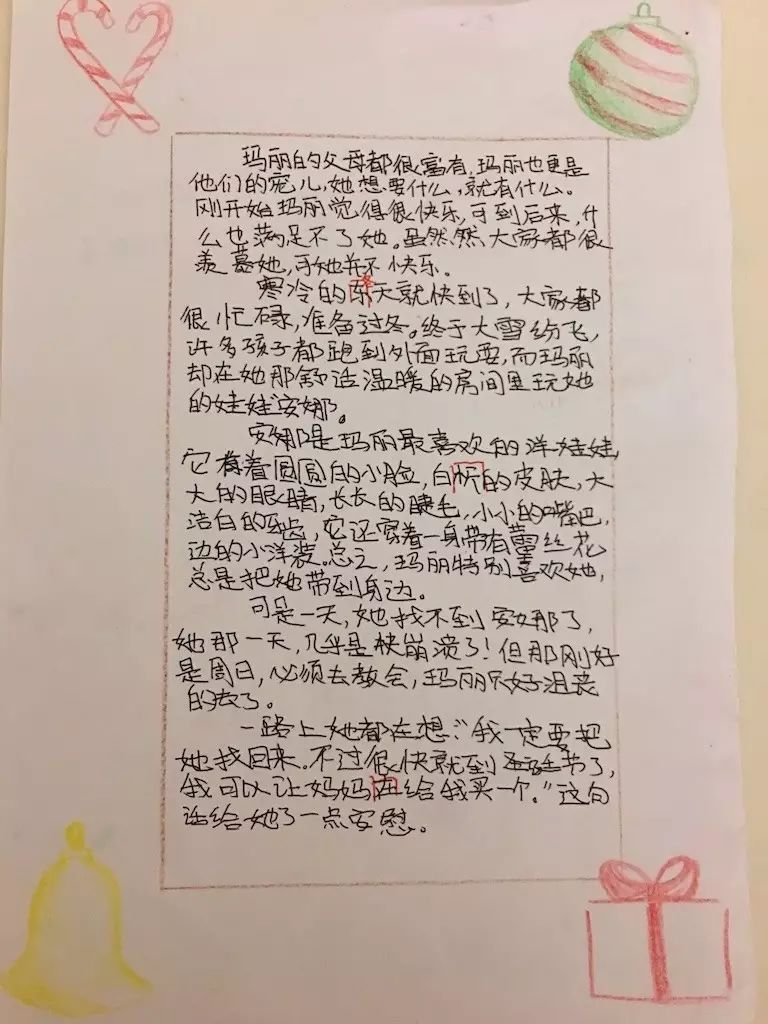 玛丽的父母都很富有,玛丽也更是
他们的宠儿,她想要什么,就有什么。
刚开始玛丽觉得很快乐,可到后来,什
么也满足不了她。虽然然大家都很
羡慕她,可她并不快乐。
寒冷的东天就快到了,大家都
很忙碌,准备过冬。终于大雪纷飞,
许多孩子都跑到外面玩耍,而玛丽
却在她那舒适温暖的房间里玩她
的娃娃安娜。
安娜是玛丽最喜欢的洋娃娃,
它有着圆圆的小脸,白析的皮肤,大
大的眼睛,长长的睫毛,小小的嘴巴,
洁白的牙齿,它还穿着一身带有蕾丝花
边的小洋装。总之,玛丽特别喜欢她,
总是把她带到身边。
可是一天,她找不到安娜了,
她那一天,几乎是快崩溃了!但那刚好
是周日,必须去教会,玛丽只好沮丧
的去了。
一路上她都在想:“我一定要把
她找回来。不过很快就到圣诞节了,
我可以让妈妈在给我买一个。”这句
话给她了一点安慰。